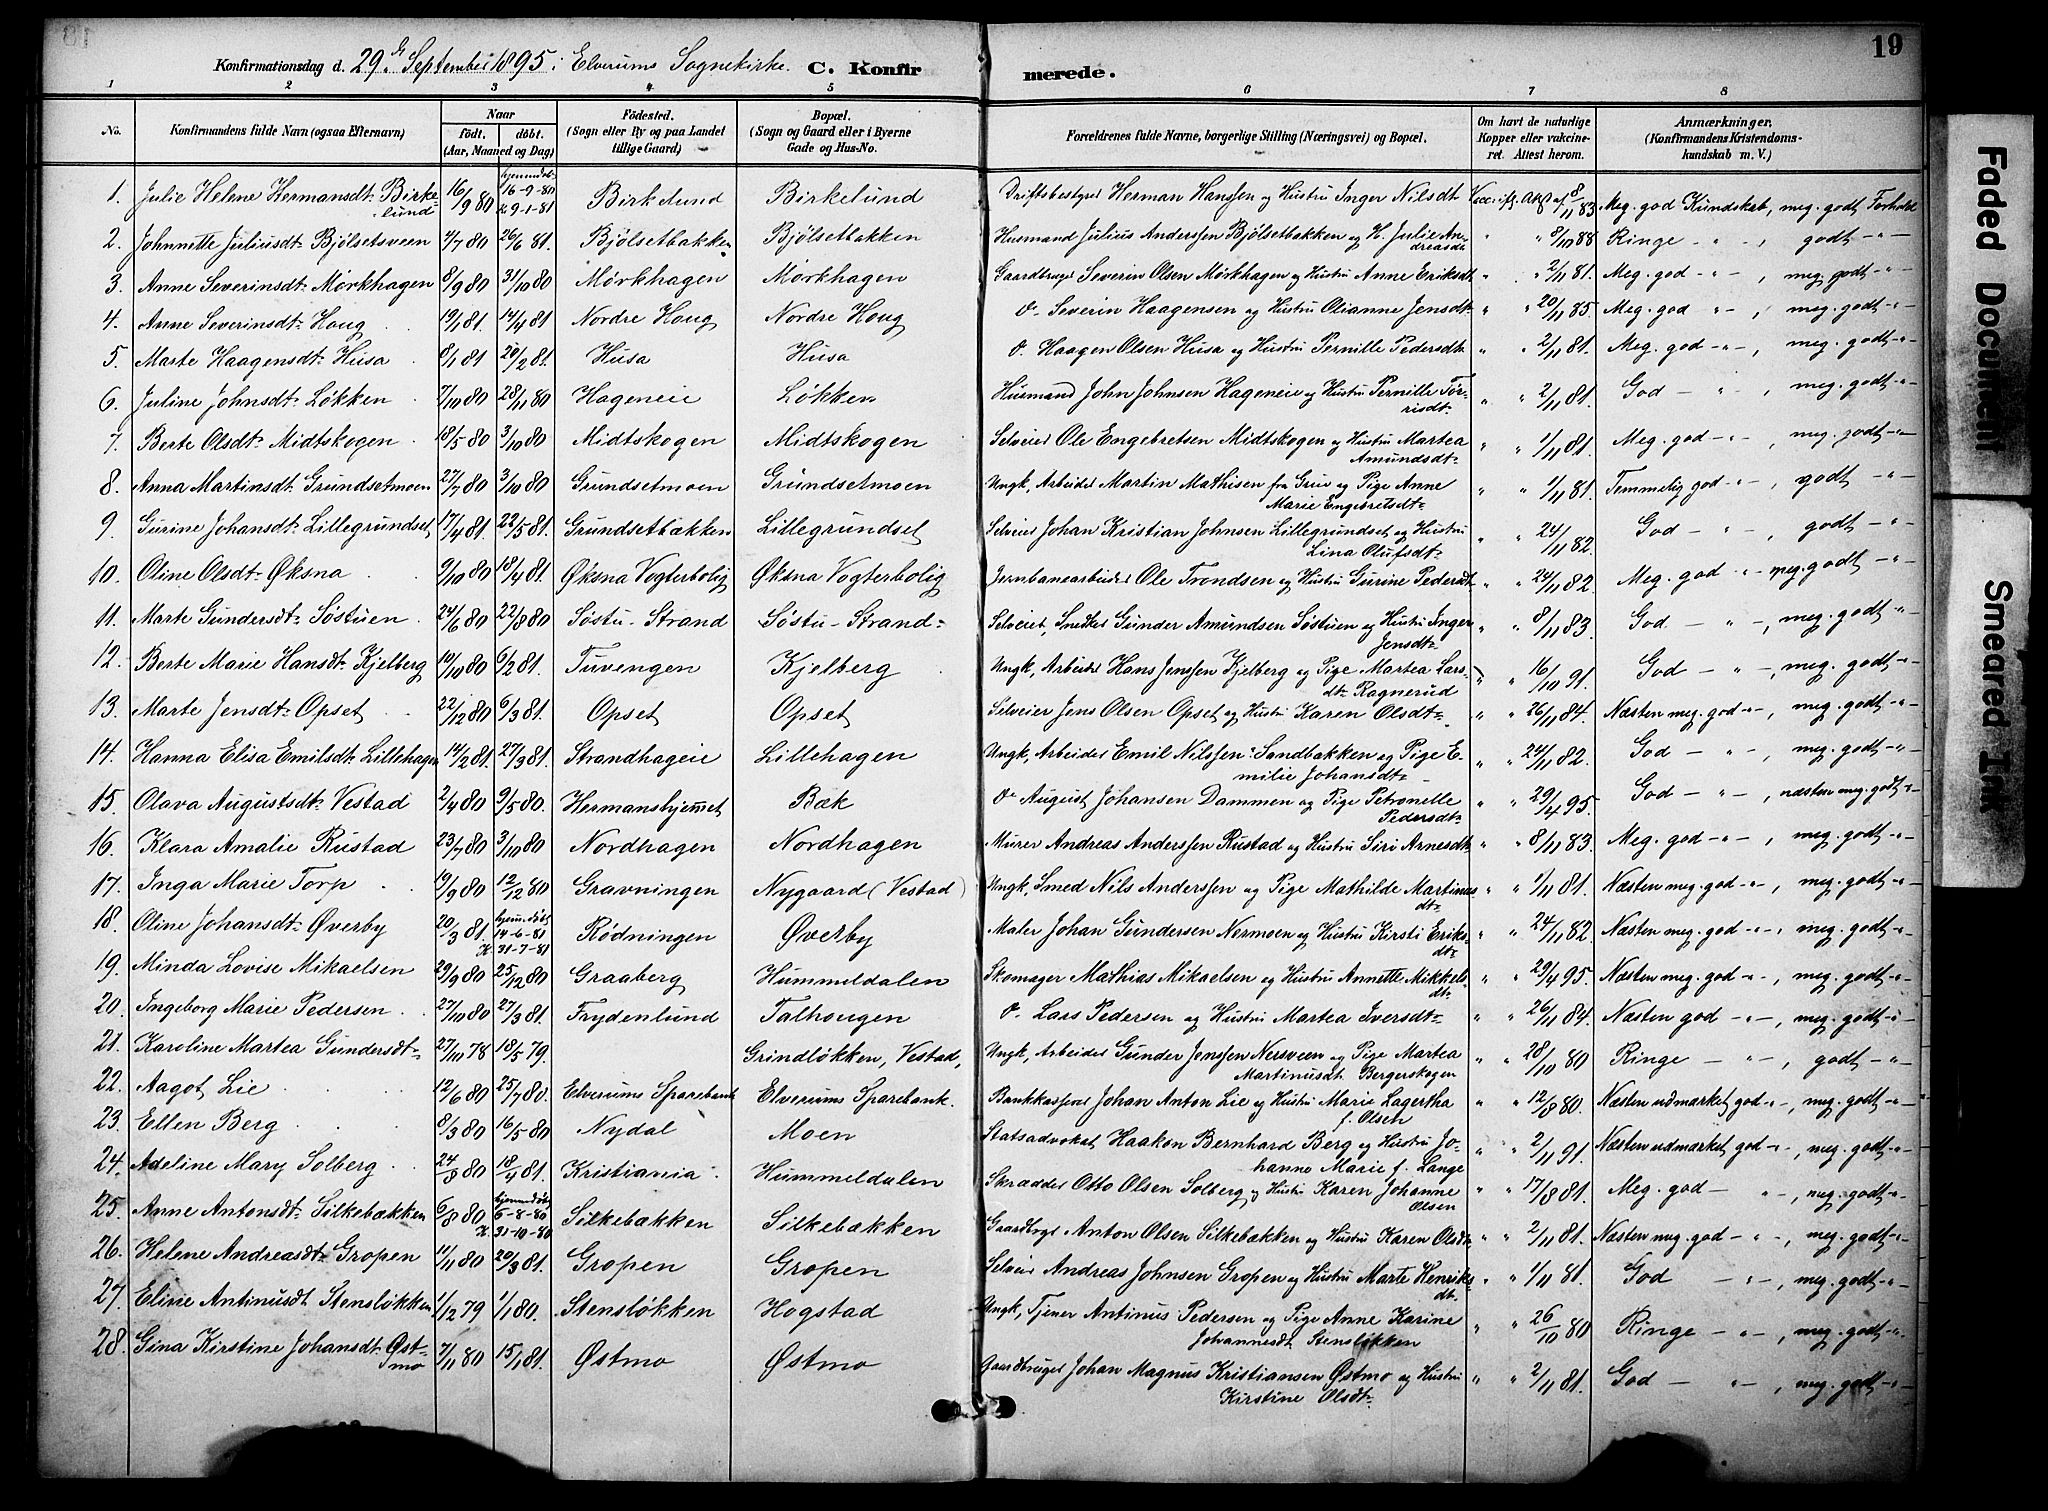 19
Konfirmationsdag d. 29de September 1895 i Elverums Sognekirke. C. Konfirmerede.
1 2 3 4 5 6 7 8
No. Konfirmandens fulde Navn (ogsaa Efternavn) Naar födt. döbt. (Aar, Maaned og Dag) Födested. (Sogn eller By og paa Landet tillige Gaard) Bopæl. (Sogn og Gaard eller i Byerne Gade og Hus-No. Forældrenes fulde Navne, borgerlige Stilling (Næringsvei) og Bopæl. Om havt de naturlige Kopper eller vakcineret. Attest herom. Anmærkninger, (Konfirmandens Kristendomskundskab m. V.)
1. Julie Helene Hermansdt. Birkelund 16/9 80 hjemmedøbt 16-9-80 K 9-1-81 Birkelund Birkelund Driftsbestyrer Herman Hanssen og Hustru Inger Nilsdt. Vacc. ifg. Att. af 8/11 83 Meg. god Kundskab, meg. godt Forhold
2. Johnette Juliusdt. Bjölsetsveen 4/7 80 26/6 81. Bjölsetbakken Bjölsetbakken Husmand Julius Anderssen Bjölsetbakken og H. Julie Andreasdt. " " 8/10 88 Ringe - " -, godt - " -
3. Anne Severinsdt. Mörkhagen 8/9 80 31/10 80 Mörkhagen Mörkhagen Gaardbruger Severin Olsen Mörkhagen og Hustru Anne Eriksdt. " " 2/11 81. Meg. god - " -, meg. godt - " -
4. Anne Severinsdt. Houg 19/1 81. 14/4 81 Nordre Houg Nordre Houg do. Severin Haagensen og Hustru Olianne Jensdt. " " 20/11 85. Meg. god - " -, meg. godt - " -
5. Marte Haagensdt. Husa 8/1 81 20/2 81. Husa Husa do. Haagen Olsen Husa og Hustru Pernille Pedersdt. " " 2/11 81. Meg. god - " -, meg. godt - " -
6. Juline Johnsdt. Løkken 7/10 80 28/11 80 Hageneie Løkken Husmand John Johnsen Hageneie og Hustru Pernille Törrisdt. " " 2/11 81. God - " -, meg. godt - " -
7. Berte Olsdt. Midtskogen 18/5 80 3/10 80 Midtskogen Midtskogen Selveier Ole Engebretsen Midtskogen og Hustru Martea Amundsdt. " " 1/11 81. Meg. god - " -, meg. godt - " -
8. Anna Martinsdt. Grundsetmoen 27/7 80 3/10 80 Grundsetmoen Grundsetmoen Ungk., Arbeider Martin Mathisen fra Grue og Pige Anne Marie Engebretsdt. " " 1/11 81. Temmelig god - " -, godt - " -
9. Gurine Johansdt. Lillegrundset 17/4 81. 22/5 81. Grundsetbækken Lillegrundset Selveier Johan Kristian Johnsen Lillegrundset og Hustru Lina Olufsdt. " " 24/11 82. God - " -, godt - " -
10. Oline Olsdt. Øksna 9/10 80 18/4 81. Øksna Vogterbolig Øksna Vogterbolig Jernbanearbeider Ole Trondsen og Hustru Gurine Pedersdt. " " 24/11 82. Meg. god - " - meg. godt - " -
11. Marte Gundersdt. Söstuen 24/6 80 22/8 80 Söstu-Strand Söstu-Strand Selveier, Snedker Gunder Amundsen Söstuen og Hustru Inger Jensdt. " " 8/11 83. God - " -, meg. godt - " -
12. Berte Marie Hansdt. Kjelberg 10/10 80 6/2 81. Tuvengen Kjelberg Ungk., Arbeider Hans Jenssen Kjelberg og Pige Martea Larsdt. Ragnerud " " 16/10 91. God - " -, meg. godt - " -
13. Marte Jensdt. Opset 22/12 80 6/3 81. Opset Opset Selveier Jens Olsen Opset og Hustru Karen Olsdt. " " 26/11 84. Næsten meg. god - " -, meg. godt - " -
14. Hanna Elisa Emilsdt. Lillehagen 14/2 81. 27/3 81. Strandhageie Lillehagen Ungk., Arbeider Emil Nilssen Sandbakken og Pige Emilie Johansdt. " " 24/11 82. God - " -, meg. godt - " -
15. Olava Augustsdt. Vestad 2/4 80 9/5 80. Hermanshjemmet Bæk do. August Johansen Dammen og Pige Petronelle Pedersdt. " " 29/4 95. God - " -, næsten meg. godt - " -
16. Klara Amalie Rustad 23/7 80 3/10 80 Nordhagen Nordhagen Murer Andreas Anderssen Rustad og Hustru Siri Arnesdt. " " 8/11 83. Meg. god - " -, meg. godt - " -
17. Inga Marie Torp 19/9 80 12/2 80 Gravningen Nygaard (Vestad) Ungk., Smed Nils Anderssen og Pige Mathilde Martinusdt. " " 1/11 81. Næsten meg. god - " -, meg. godt - " -
18. Oline Johansdt. Øverby 20/3 81. hjemmedöbt 14-6-81 K. 31-7-81 Rödningen Øverby Maler Johan Gundersen Nermoen og Hustru Kirsti Eriksdt. " " 24/11 82. Næsten meg. god - " -, meg. godt - " -
19. Minda Lovise Mikaelsen 29/9 80 25/12 80 Graaberg Hummeldalen Skomager Mathias Mikaelsen og Hustru Annette Mikkelsdt. " " 29/4 95. Næsten meg. god - " -, meg. godt - " -
20. Ingeborg Marie Pedersen 27/10 80 27/3 81. Frydenlund Talhougen do. Lars Pedersen og Hustru Martea Iversdt. " " 26/11 84. Næsten god - " -, meg. godt - " -
21. Karoline Martea Gundersdt. 27/10 78 18/5 79. Grindløkken, Vestad, Ungk., Arbeider Gunder Jenssen Nersveen og Pige Martea Martinusdt. Bergerskogen " " 28/10 80 Ringe - " -, godt - " -
22. Aagot Lie 12/6 80 25/7 80. Elverums Sparebank Elverums Sparebank. Bankkasserer Johan Anton Lie og Hustru Marie Lagertha f. Olsen " " 12/8 80. Næsten udmærket god - " -, meg. godt - " -
23. Ellen Berg 8/3 80 16/5 80 Nydal Moen Statsadvokat Haakon Bernhard Berg og Hustru Johanne Marie f. Lange " " 2/11 91. Næsten udmærket god - " -, meg. godt - " -
24. Adeline Mary Solberg 24/8 80 18/4 81. Kristiania Hummeldalen Skrædder Otto Olsen Solberg og Hustru Karen Johanne Olsen " " 17/8 81. Meg. god - " -, meg. godt - " -
25. Anne Antonsdt. Silkebækken 6/8 80 hjemmedöbt 6-8-80 K. 31-10-80 Silkebækken Silkebækken Gaardbrgr. Anton Olsen Silkebækken og Hustru Karen Olsdt. " " 2/11 81. Næsten meg. god - " -, meg. godt - " -
26. Helene Andreasdt. Gropen 11/11 80 20/3 81. Gropen Gropen Selveier Andreas Johnsen Gropen og Hustru Marte Henriksdt. " " 1/11 81. God - " -, meg. godt - " -
27. Eline Antinusdt. Stensløkken 1/12 79 1/1 80. Stensløkken Hogstad Ungk., Tjener Antinus Pedersen og Pige Anne Karine Johannesdt. Stensløkken " " 26/10 80 Ringe - " -, meg. godt - " -
28. Gina Kirstine Johansdt. Østmo 7/11 80 15/1 81. Østmo Østmo Gaardbruger Johan Magnus Kristiansen Østmo og Hustru Kirstine Olsdt. " " 2/11 81. God - " -, meg. godt - " -
Faded Document
Smeared Ink